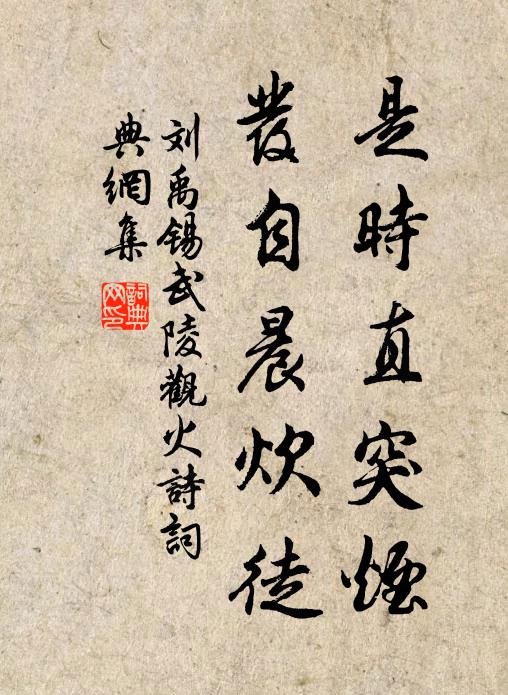 是時直突煙
發自晨炊徒
刘禹锡武陵觀火詩詞
典網集
詞典網印